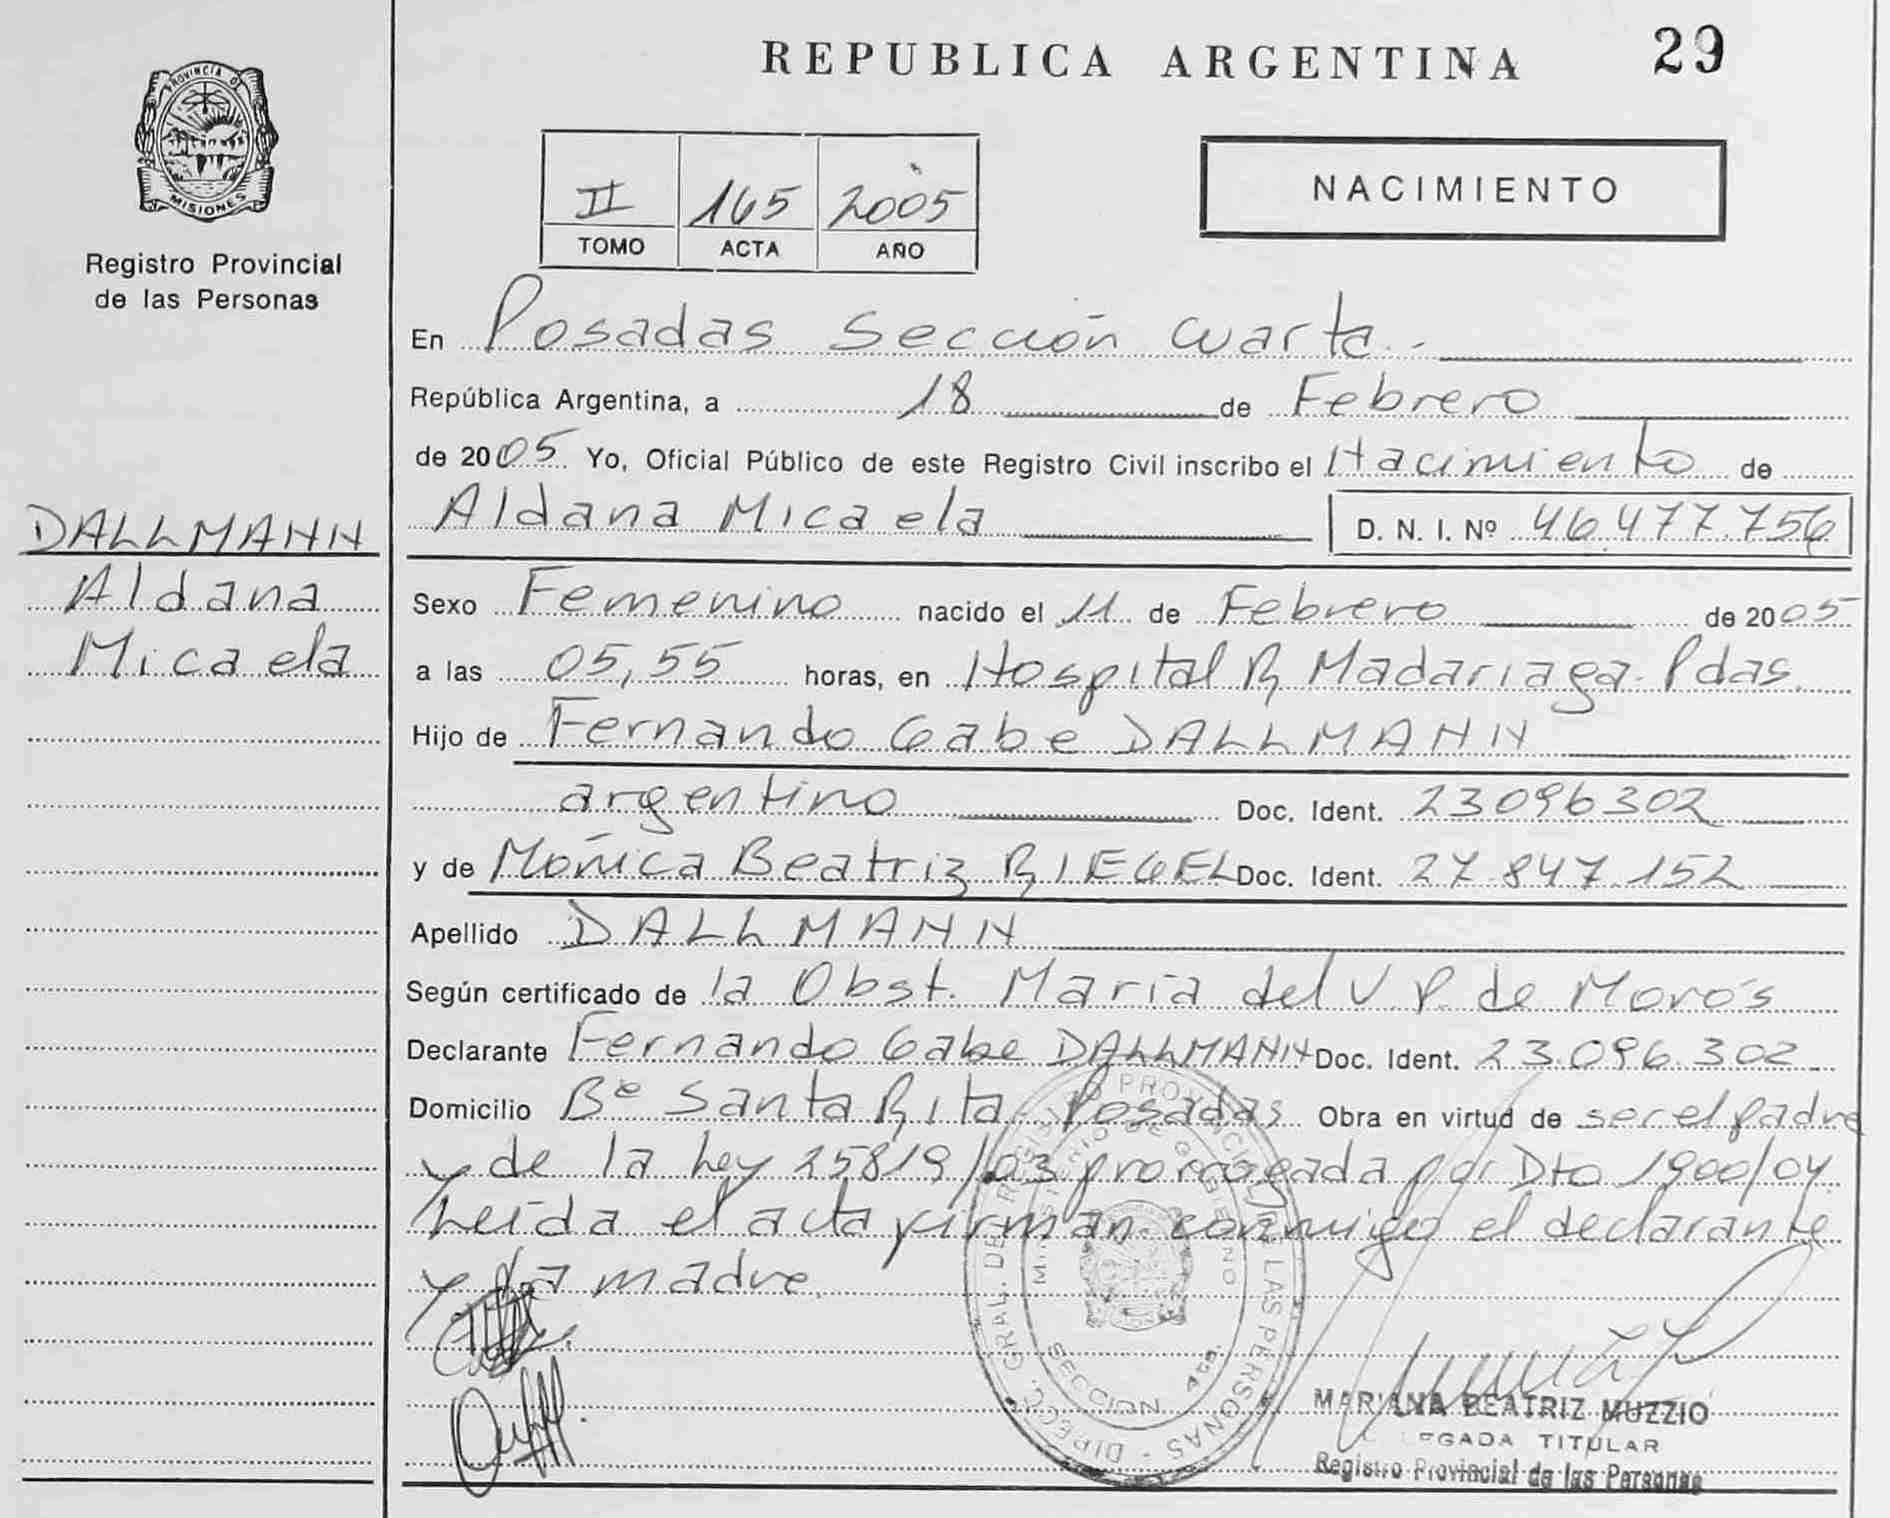 REPUBLICA ARGENTINA 29
PROVINCIA DE
MISIONES
Registro Provincial
de las Personas
II 165 2005
TOMO ACTA AÑO
NACIMIENTO
En Posadas Sección Cuarta.-
República Argentina, a 18 de Febrero
de 2005 Yo, Oficial Público de este Registro Civil inscribo el Nacimiento de
Aldana Micaela D. N. I. Nº 46.477.756
DALLMANN
Aldana
Micaela
Sexo Femenino nacido el 11 de Febrero de 2005
a las 05,55 horas, en Hospital R Madariaga. Pdas.
Hijo de Fernando Gabe DALLMANN
argentino Doc. Ident. 23096302
y de Mónica Beatriz RIEGEL Doc. Ident. 27.847.152
Apellido DALLMANN
Según certificado de la Obst. María del V P. de Morós
Declarante Fernando Gabe DALLMANN Doc. Ident. 23.096.302
Domicilio Bº Santa Rita Posadas Obra en virtud de ser el padre
y de la Ley 25819/03 prorrogada por Dto 1900/04.
Leída el acta firman conmigo el declarante
y la madre.
DIRECC. GRAL. DEL REGISTRO PROVINCIAL DE LAS PERSONAS
MINISTERIO DE GOBIERNO
SECCION 4ta.
MARIANA BEATRIZ MUZZIO
DELEGADA TITULAR
Registro Provincial de las Personas